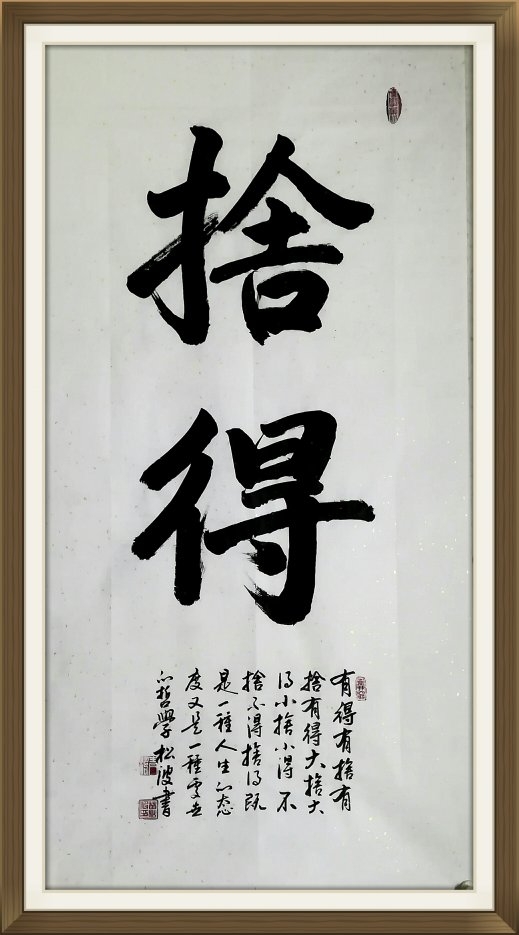 捨得
有得有捨有
捨有得大捨大
得小捨小得不
捨不得捨得既
是一種人生的态
度又是一種处世
的哲學松波書